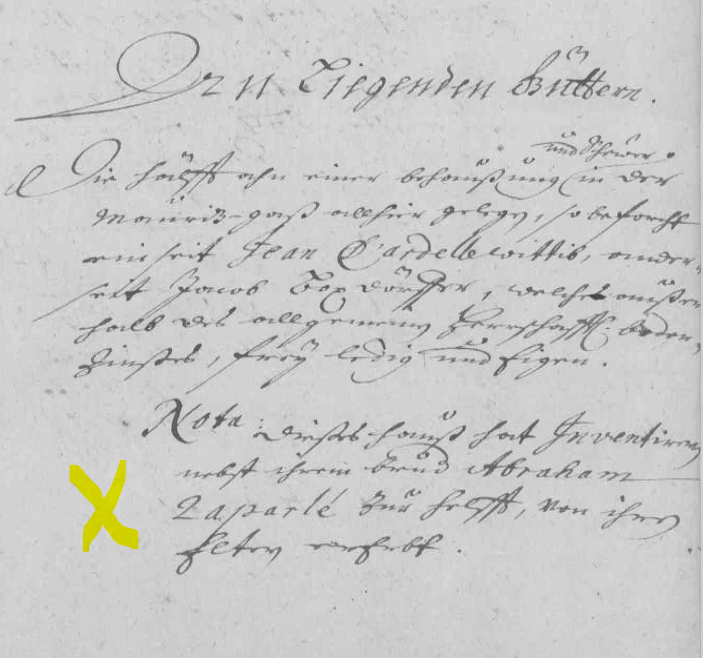 An Liegenden Güttern.
und Scheuer
Die hälfft ahn einer behaußung in der
Mauritz-gaß allhier gelegen, so beforcht
einseit Jean Cardelle wittib, ander-
seit Jacob, welches außer-
halb des allgemeinen Herrschafftl. boden-
Zinßes, frey ledig und Eigen.
Nota: dießes hauß hat Inventirerin
nebst ihrem brud. Abraham
Laparlé zur helfft, von ihren
Eltern ererbt.